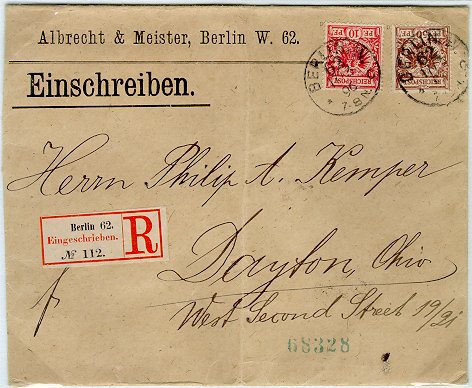 Albrecht & Meister, Berlin W. 62.
Einschreiben.
10 PF
REICHSPOST
REICHSPOST
BERLIN
62
7-8N
Herrn Philip A. Kemper
Berlin 62.
Eingeschrieben.
№ 112.
R
Dayton, Ohio
West Second Street 19/21
68328